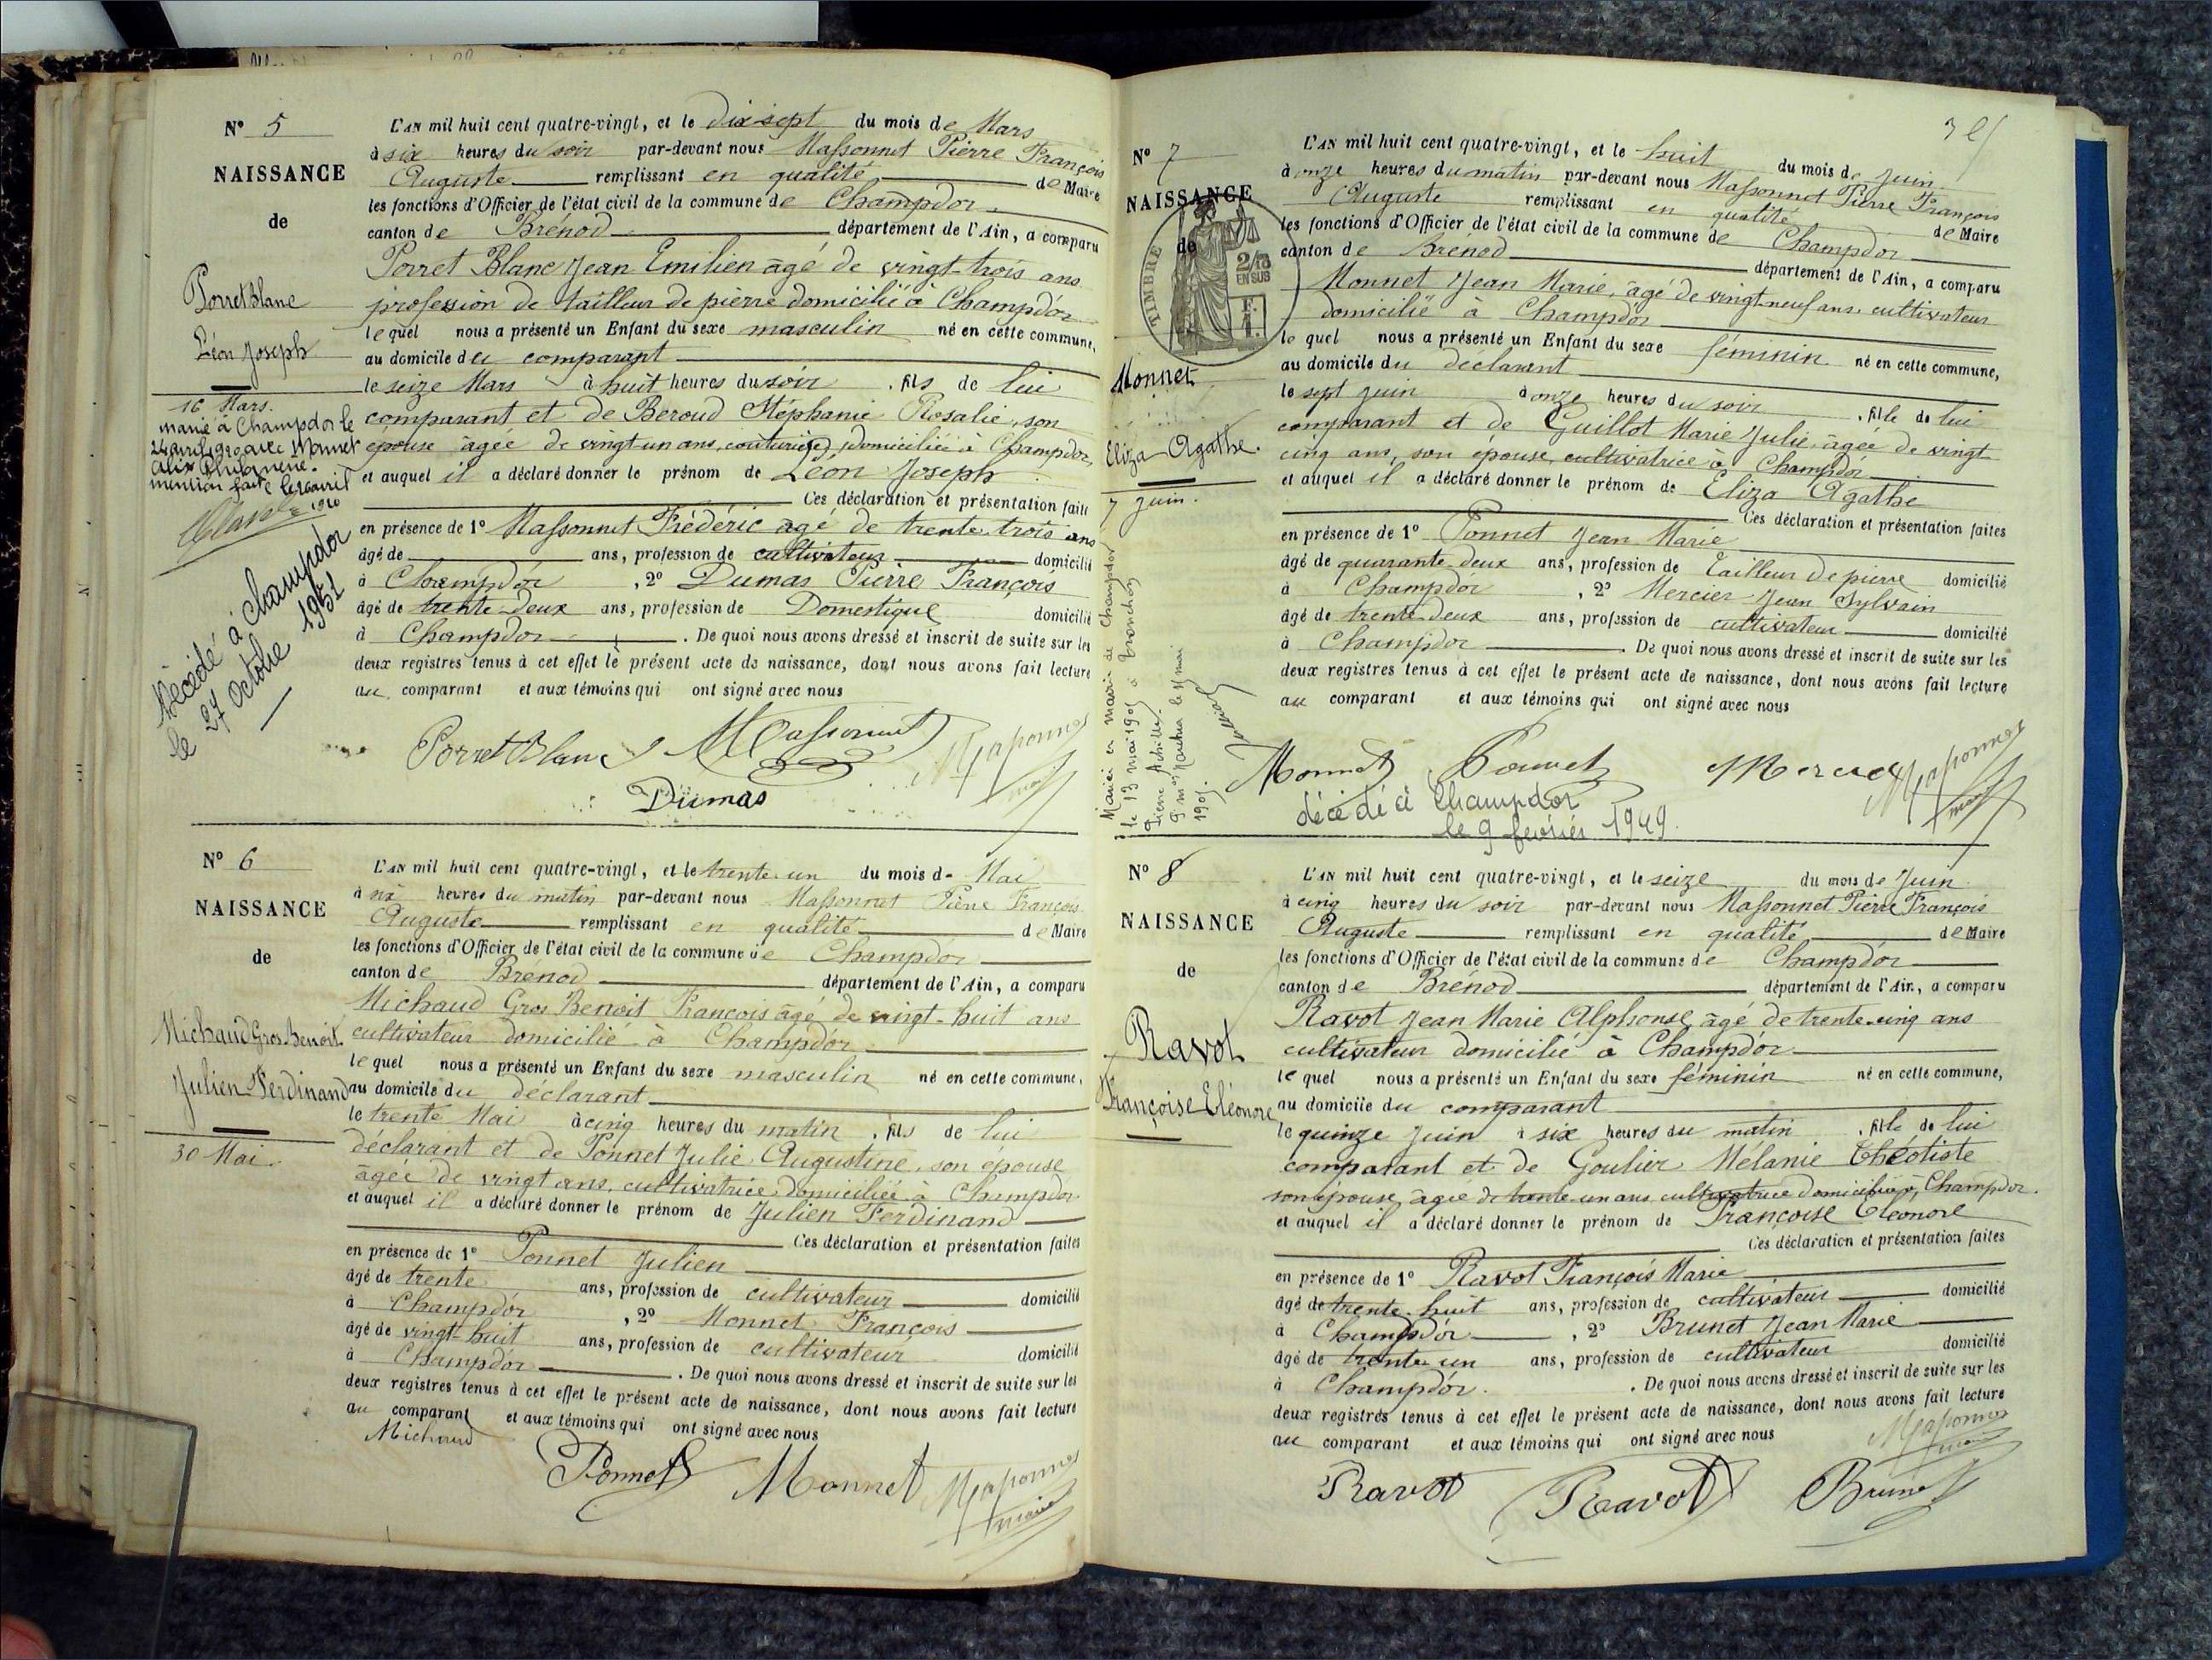 N° 5
NAISSANCE
de
Porret Blanc
Léon Joseph
16 Mars.
marié à Champdor le
24 avril 1920 avec Monnet
Alix Philomène.
mention faite le 26 avril
1920
Décédé à Champdor
le 27 Octobre 1951
L'AN mil huit cent quatre-vingt, et le dix sept du mois de Mars
à six heures du soir par-devant nous Massonnet Pierre François
Auguste remplissant en qualité de Maire
les fonctions d'Officier de l'état civil de la commune de Champdor
canton de Brénod département de l'Ain, a comparu
Porret Blanc Jean Emilien âgé de vingt-trois ans
profession de tailleur de pierre domicilié à Champdor
le quel nous a présenté un Enfant du sexe masculin né en cette commune,
au domicile du comparant
le seize Mars à huit heures du soir, fils de lui
comparant et de Beroud Stéphanie Rosalie, son
épouse âgée de vingt-un ans, couturière, domiciliée à Champdor,
et auquel il a déclaré donner le prénom de Léon Joseph
Ces déclaration et présentation faites
en présence de 1° Massonnet Frédéric âgé de trente trois ans
âgé de ans, profession de cultivateur domicilié
à Champdor, 2° Dumas Pierre François
âgé de trente-deux ans, profession de Domestique domicilié
à Champdor. De quoi nous avons dressé et inscrit de suite sur les
deux registres tenus à cet effet le présent acte de naissance, dont nous avons fait lecture
au comparant et aux témoins qui ont signé avec nous
Porret Blanc Massonnet Massonnet
maire
Dumas
N° 6
NAISSANCE
de
Michaud Gros Benoit
Julien Ferdinand
30 Mai.
L'AN mil huit cent quatre-vingt, et le trente un du mois de Mai
à six heures du matin par-devant nous Massonnet Pierre François
Auguste remplissant en qualité de Maire
les fonctions d'Officier de l'état civil de la commune de Champdor
canton de Brénod département de l'Ain, a comparu
Michaud Gros Benoit François âgé de vingt-huit ans
cultivateur domicilié à Champdor
le quel nous a présenté un Enfant du sexe masculin né en cette commune,
au domicile du déclarant
le trente Mai à cinq heures du matin, fils de lui
déclarant et de Ponnet Julie Augustine, son épouse
âgée de vingt ans, cultivatrice, domiciliée à Champdor
et auquel il a déclaré donner le prénom de Julien Ferdinand
Ces déclaration et présentation faites
en présence de 1° Ponnet Julien
âgé de trente ans, profession de cultivateur domicilié
à Champdor, 2° Monnet François
âgé de vingt-huit ans, profession de cultivateur domicilié
à Champdor. De quoi nous avons dressé et inscrit de suite sur les
deux registres tenus à cet effet le présent acte de naissance, dont nous avons fait lecture
au comparant et aux témoins qui ont signé avec nous
Michaud
Ponnet Monnet Massonnet
maire
N° 7
NAISSANCE
de
TIMBRE
2/10
EN SUS
F.
1.
Monnet
Eliza Agathe.
7 Juin.
Mariée en mairie de Champdor
le 13 mai 1901 à
Pierre Achille.
le 14 mai
1901.
L'AN mil huit cent quatre-vingt, et le huit du mois de Juin
à onze heures du matin par-devant nous Massonnet Pierre François
Auguste remplissant en qualité de Maire
les fonctions d'Officier de l'état civil de la commune de Champdor
canton de Brénod département de l'Ain, a comparu
Monnet Jean Marie, âgé de vingt-neuf ans, cultivateur
domicilié à Champdor
le quel nous a présenté un Enfant du sexe féminin né en cette commune,
au domicile du déclarant
le sept Juin à onze heures du soir, fille de lui
comparant et de Guillot Marie Julie, âgée de vingt-
cinq ans, son épouse, cultivatrice à Champdor
et auquel il a déclaré donner le prénom de Eliza Agathe
Ces déclaration et présentation faites
en présence de 1° Ponnet Jean Marie
âgé de quarante-deux ans, profession de Tailleur de pierre domicilié
à Champdor, 2° Mercier Jean Sylvain
âgé de trente-deux ans, profession de cultivateur domicilié
à Champdor. De quoi nous avons dressé et inscrit de suite sur les
deux registres tenus à cet effet le présent acte de naissance, dont nous avons fait lecture
au comparant et aux témoins qui ont signé avec nous
Monnet Ponnet Mercier Massonnet
maire
décédé à Champdor
le 9 février 1949.
N° 8
NAISSANCE
de
Ravot
Françoise Eléonore
L'AN mil huit cent quatre-vingt, et le seize du mois de Juin
à cinq heures du soir par-devant nous Massonnet Pierre François
Auguste remplissant en qualité de Maire
les fonctions d'Officier de l'état civil de la commune de Champdor
canton de Brénod département de l'Ain, a comparu
Ravot Jean Marie Alphonse, âgé de trente-cinq ans
cultivateur domicilié à Champdor
le quel nous a présenté un Enfant du sexe féminin né en cette commune,
au domicile du comparant
le quinze Juin à six heures du matin, fille de lui
comparant et de Goulier Mélanie Théotiste
son épouse, âgée de trente-un ans cultivatrice domiciliée à Champdor.
et auquel il a déclaré donner le prénom de Françoise Eléonore
Ces déclaration et présentation faites
en présence de 1° Ravot François Marie
âgé de trente-huit ans, profession de cultivateur domicilié
à Champdor, 2° Brunet Jean Marie
âgé de trente un ans, profession de cultivateur domicilié
à Champdor. De quoi nous avons dressé et inscrit de suite sur les
deux registres tenus à cet effet le présent acte de naissance, dont nous avons fait lecture
au comparant et aux témoins qui ont signé avec nous
Massonnet
maire
Ravot Ravot Brunet